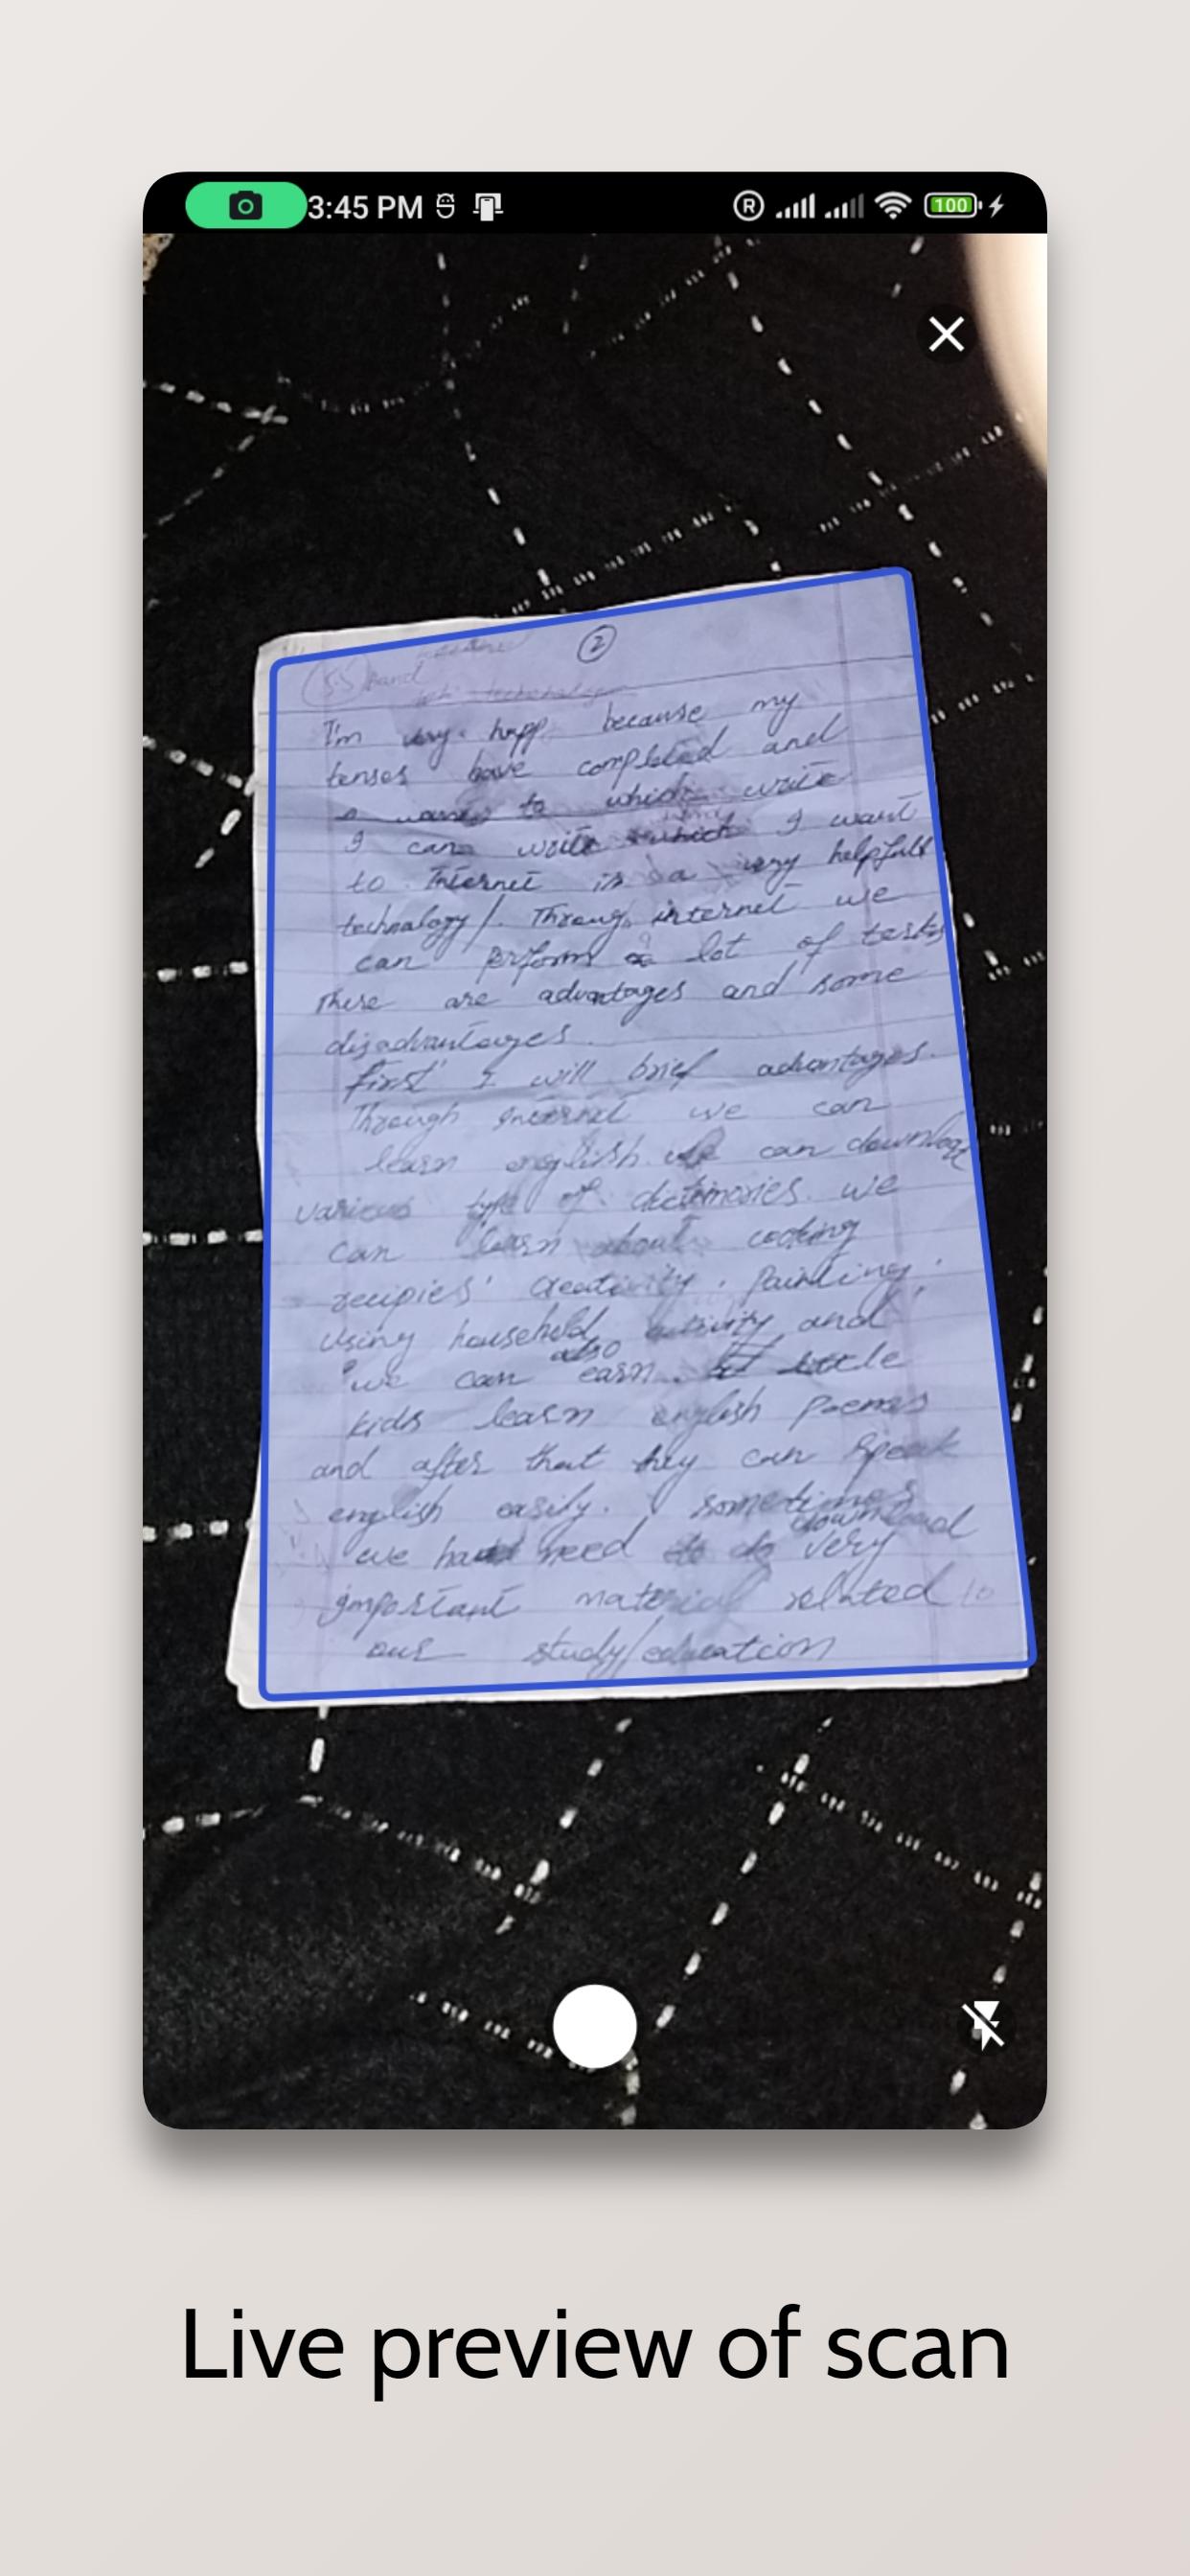 3:45 PM
100
2
I'm very happ because my
tenses have completed and
to which write
I can write which I want
to Internet is a very helpfull
technology/. Throug internet we
can perform a lot of tasks
There are advantages and some
disadvantages.
first I will brief advantages.
Through internet we can
learn english. we can download
various type of dictionaries. we
can learn about cooking
recipies' creativity. Painting.
using household activity and
also
we can earn. little
kids learn english poems
and after that they can speak
english easily. sometimes
download
we have need very
important material related to
our study/education
Live preview of scan